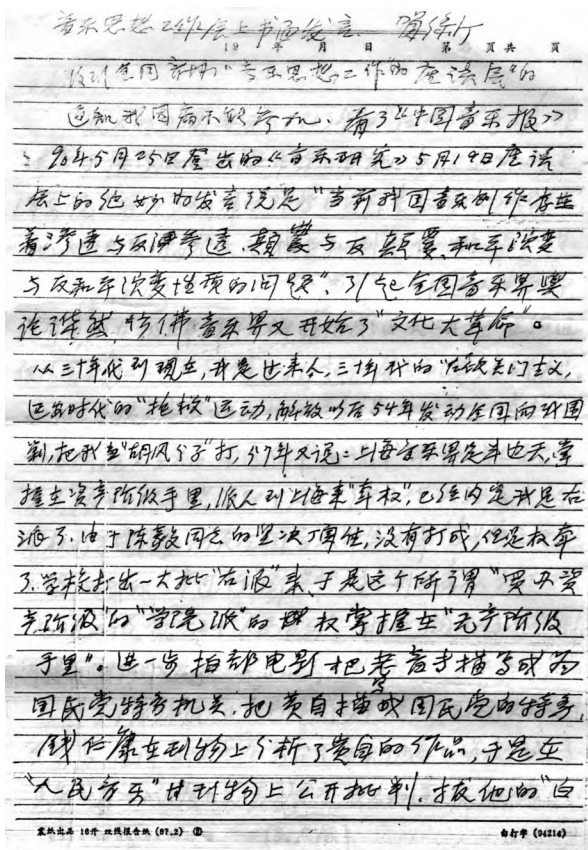 音乐思想工作座谈会上书面发言 贺绿汀
19 年 月 日 第 页共 页
收到全国音协"音乐思想工作的座谈会"的
通知我因病不能参加、看了《中国音乐报》
90年5月25日登出的《音乐研究》5月19日座谈
会上的绝妙的发言说是"当前我国音乐创作存在
着渗透与反渗透、颠覆与反颠覆、和平演变
与反和平演变性质的问题"、引起全国音乐界舆
论哗然,仿佛音乐界又开始了"文化大革命"。
从三十年代到现在,我是过来人,三十年代的"左"倾关门主义,
延安时代的"抢救"运动,解放以后54年发动全国向我围
剿,把我当"胡风分子"打,57年又说:上海音乐界是半边天,掌
握在资产阶级手里,派人到上海来"夺权",已经内定我是右
派了.由于陈毅同志的坚决顶住,没有打成,但是权夺
了.学校打出一大批"右派"来、于是这个所谓"买办资
产阶级"的"学院派"的 权掌握在"无产阶级
手里"。进一步拍部电影把老音专描写成为
国民党特务机关.把黄自描写成国民党的特务,
钱仁康在刊物上分析了黄自的作品,于是在
"人民音乐"廿刊物上公开批判.拔他的"白
16开 双线报告纸(87.2) ②
自打字(94214)